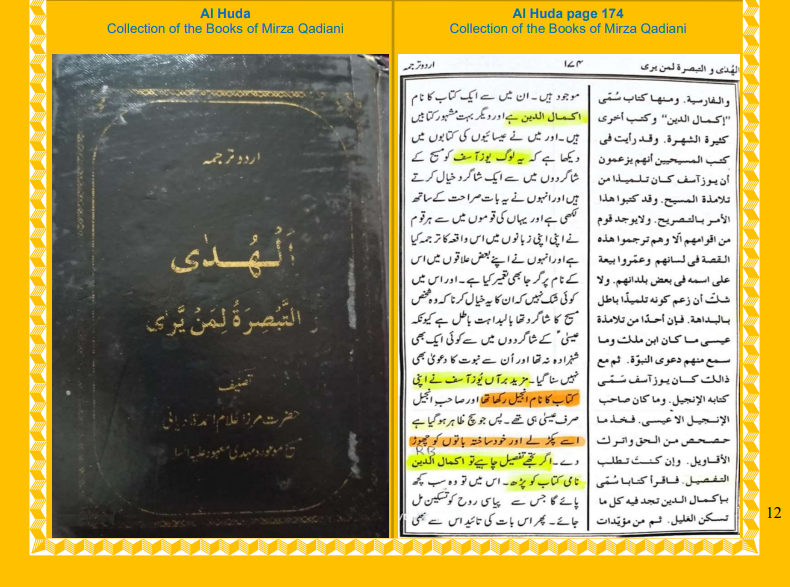 Al Huda
Collection of the Books of Mirza Qadiani
Al Huda page 174
Collection of the Books of Mirza Qadiani
اردو ترجمہ
اَلْهُدٰی
وَالتَّبْصِرَةُ لِمَنْ يَّرٰی
تصنیف
حضرت مرزا غلام احمد قادیانی
مسیح موعود و مہدی معہود علیہ السلام
اردو ترجمہ
۱۷۴
الهُدٰى و التبصرة لمن يرى
موجود ہیں۔ ان میں سے ایک کتاب کا نام
اکمال الدین ہے اور دیگر بہت مشہور کتابیں
ہیں۔ اور میں نے عیسائیوں کی کتابوں میں
دیکھا ہے کہ یہ لوگ یوز آسف کو مسیح کے
شاگردوں میں سے ایک شاگرد خیال کرتے
ہیں اور انہوں نے یہ بات صراحت کے ساتھ
لکھی ہے اور یہاں کی قوموں میں سے ہر قوم
نے اپنی اپنی زبانوں میں اس واقعہ کا ترجمہ کیا
ہے اور انہوں نے اپنے بعض علاقوں میں اس
کے نام پر گرجا بھی تعمیر کیا ہے۔ اور اس میں
کوئی شک نہیں کہ ان کا یہ خیال کرنا کہ وہ شخص
مسیح کا شاگرد تھا بالبداہت باطل ہے کیونکہ
عیسیٰؑ کے شاگردوں میں سے کوئی ایک بھی
شہزادہ نہ تھا اور اُن سے نبوت کا دعویٰ بھی
نہیں سنا گیا۔ مزید برآں یُوز آسف نے اپنی
کتاب کا نام انجیل رکھا تھا اور صاحبِ انجیل
صرف عیسیٰ ہی تھے۔ پس جو سچ ظاہر ہو گیا ہے
اسے پکڑ لے اور خود ساختہ باتوں کو چھوڑ
دے۔ اگر تجھے تفصیل چاہیے تو اکمال الدین
نامی کتاب کو پڑھ۔ اس میں تو وہ سب کچھ
پائے گا جس سے پیاسی روح کو تسکین مل
جائے۔ پھر اس بات کی تائید اس سے بھی
والفارسية. ومنها كتاب سُمّى
"إكمال الدين" وكتب أخرى
كثيرة الشهرة. وقد رأيت فى
كتب المسيحيين أنهم يزعمون
أن يوز آسف كان تلميذًا من
تلامذة المسيح. وقد كتبوا هذا
الأمر بالتصريح. ولا يوجد قوم
من أقوامهم الّا وهم ترجموا هذه
القصة فى لسانهم وعمّروا بيعة
على اسمه فى بعض بلدانهم. ولا
شكّ أن زعم كونه تلميذًا باطل
بالبداهة. فإن أحدًا من تلامذة
عيسى ما كان ابن ملك وما
سمع منهم دعوى النبوّة. ثم مع
ذالك كان يوز آسف سمّى
كتابه الإنجيل. وما كان صاحب
الإنجيل الا عيسى. فخذ ما
حصحص من الحق واترك
الأقاويل. وإن كنت تطلب
التفصيل. فاقرأ كتابا سُمّى
بإكمال الدين تجد فيه كل ما
تسكن الغليل. ثم من مؤيّدات
12